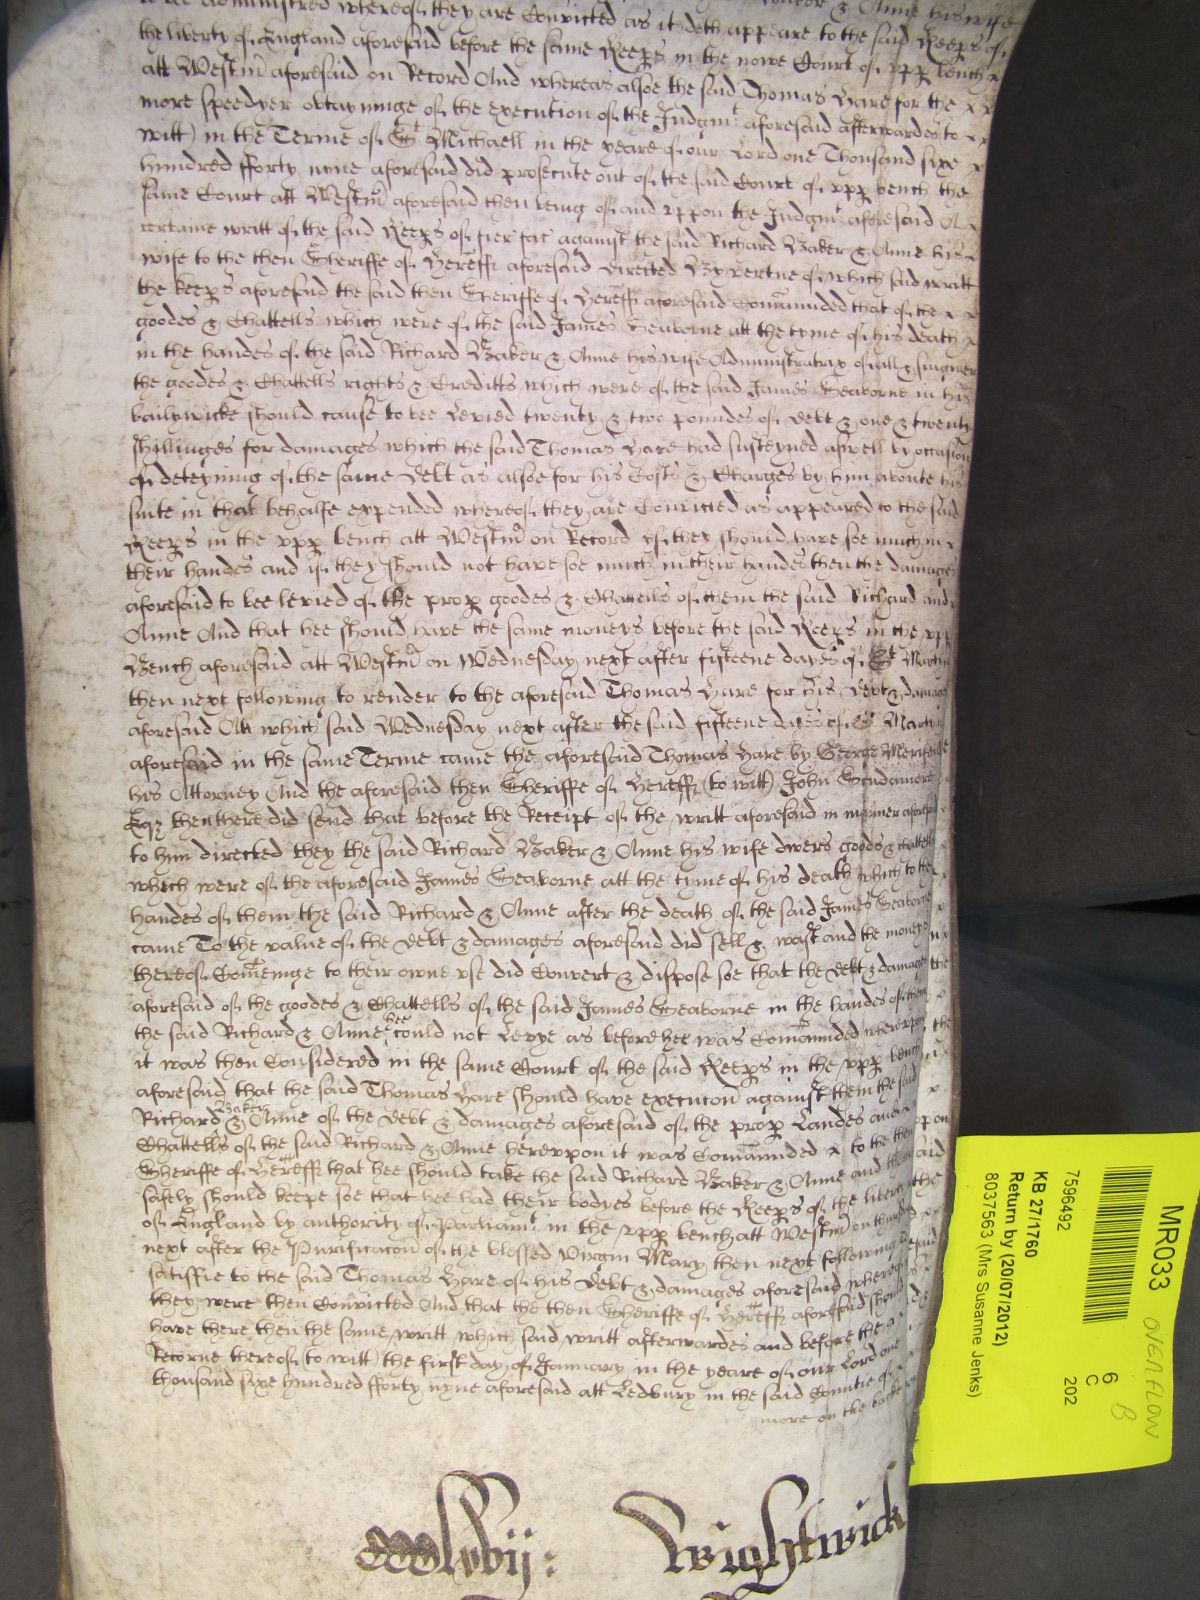 to be administred whereof they are Convicted as it doth appeare to the said Keeps of
the liberty of England aforesaid before the same Keeps in the nowe Court of vpp bench x
att Westm aforesaid on Record And whereas alsoe the said Thomas Hare for the x x
more speedyer obtayninge of the execution of the Judgmt aforesaid afterwardes to x x
witt) in the Terme of St Michaell in the yeare of our Lord one Thousand sixe x
hundred fforty nyne aforesaid did prosecute out of the said Court of vpp bench the
same Court att Westm aforesaid then being of and vppon the Judgmt aforesaid A x
certaine writt of the said Keeps of fier fac against the said Richard Baker & Anne his x
wife to the then Sheriffe of Hereff aforesaid directed By vertue of which said writt
the keeps aforesaid the said then Sheriffe of Hereff aforesaid Comaunded that of the x x
goodes & Chattells which were of the said James Seaborne att the tyme of his death x
in the handes of the said Richard Baker & Anne his wife Administratrax of all & singuler
the goodes & Chattells rights & Creditts which were of the said James Seaborne in his
bailywicke should cause to bee Levied twenty & two poundes of debt & one & twenty
shillinges for damages which the said Thomas Hare had susteyned aswell by occasion
of deteyning of the same debt as alsoe for his Costs & Charges by him aboute his
suite in that behalfe expended whereof they are Convicted as appeared to the said
Keeps in the vpp bench att Westm on Record yf they should have soe much in x
their handes and if they should not have soe much in their handes then the damages
aforesaid to bee levied of the prop goodes & Chattells of them the said Richard and
Anne And that hee should have the same moneys before the said Keeps in the vpp
Bench aforesaid att Westm on Wednesday next after fifteene dayes of St Martyn
then next following to render to the aforesaid Thomas Hare for his Debt & damages
aforesaid Att which said Wednesday next after the said fifteene daies of St Martin
aforesaid in the same Terme came the aforesaid Thomas Hare by George Merifeilde
his Attorney And the aforesaid then Sheriffe of Hereff (to witt) John Scudamore
Esqz then there did send that before the Receipt of the writt aforesaid in manner aforesaid
to him directed they the said Richard Baker & Anne his wife divers goods & chattells
which were of the aforesaid James Seaborne att the tyme of his death which to the
handes of them the said Richard & Anne after the death of the said James Seaborne
came To the value of the debt & damages aforesaid did sell & wast and the moneys
thereof Comeinge to their owne vse did Convert & dispose soe that the debt & damages
aforesaid of the goodes & Chattells of the said James Seaborne in the handes of them
the said Richard & Anne hee could not Levye as before hee was Comaunded wherevpon
it was then Considered in the same Court of the said Keeps in the vpp bench
aforesaid that the said Thomas Hare should have execucon against them the said
Richard Baker & Anne of the debt & damages aforesaid of the prop Landes and
Chattells of the said Richard & Anne herevpon it was Comaunded x to the then
Sheriffe of Hereff that hee should take the said Richard Baker & Anne and them
safely should keepe soe that hee had their bodyes before the Keeps of the liberty
of England by authority of Parliamt in the vpp bench att Westm on
next after the Purificacon of the blessed Virgin Mary then next following
satisfie to the said Thomas Hare of his Debt & damages aforesaid whereof
they were then Convicted And that the then Sheriffe of Hereff aforesaid should
have there then the same writt which said writt afterwardes and before the
Retorne thereof (to witt) the first day of January in the yeare of our Lord one
thousand sixe hundred fforty nyne aforesaid att Ledbury in the said Countie of
more on the backe
Wightwick
MR033
OVERFLOW
B
6
C
202
7596492
KB 27/1760
Return by (20/07/2012)
8037563 (Mrs Susanne Jenks)